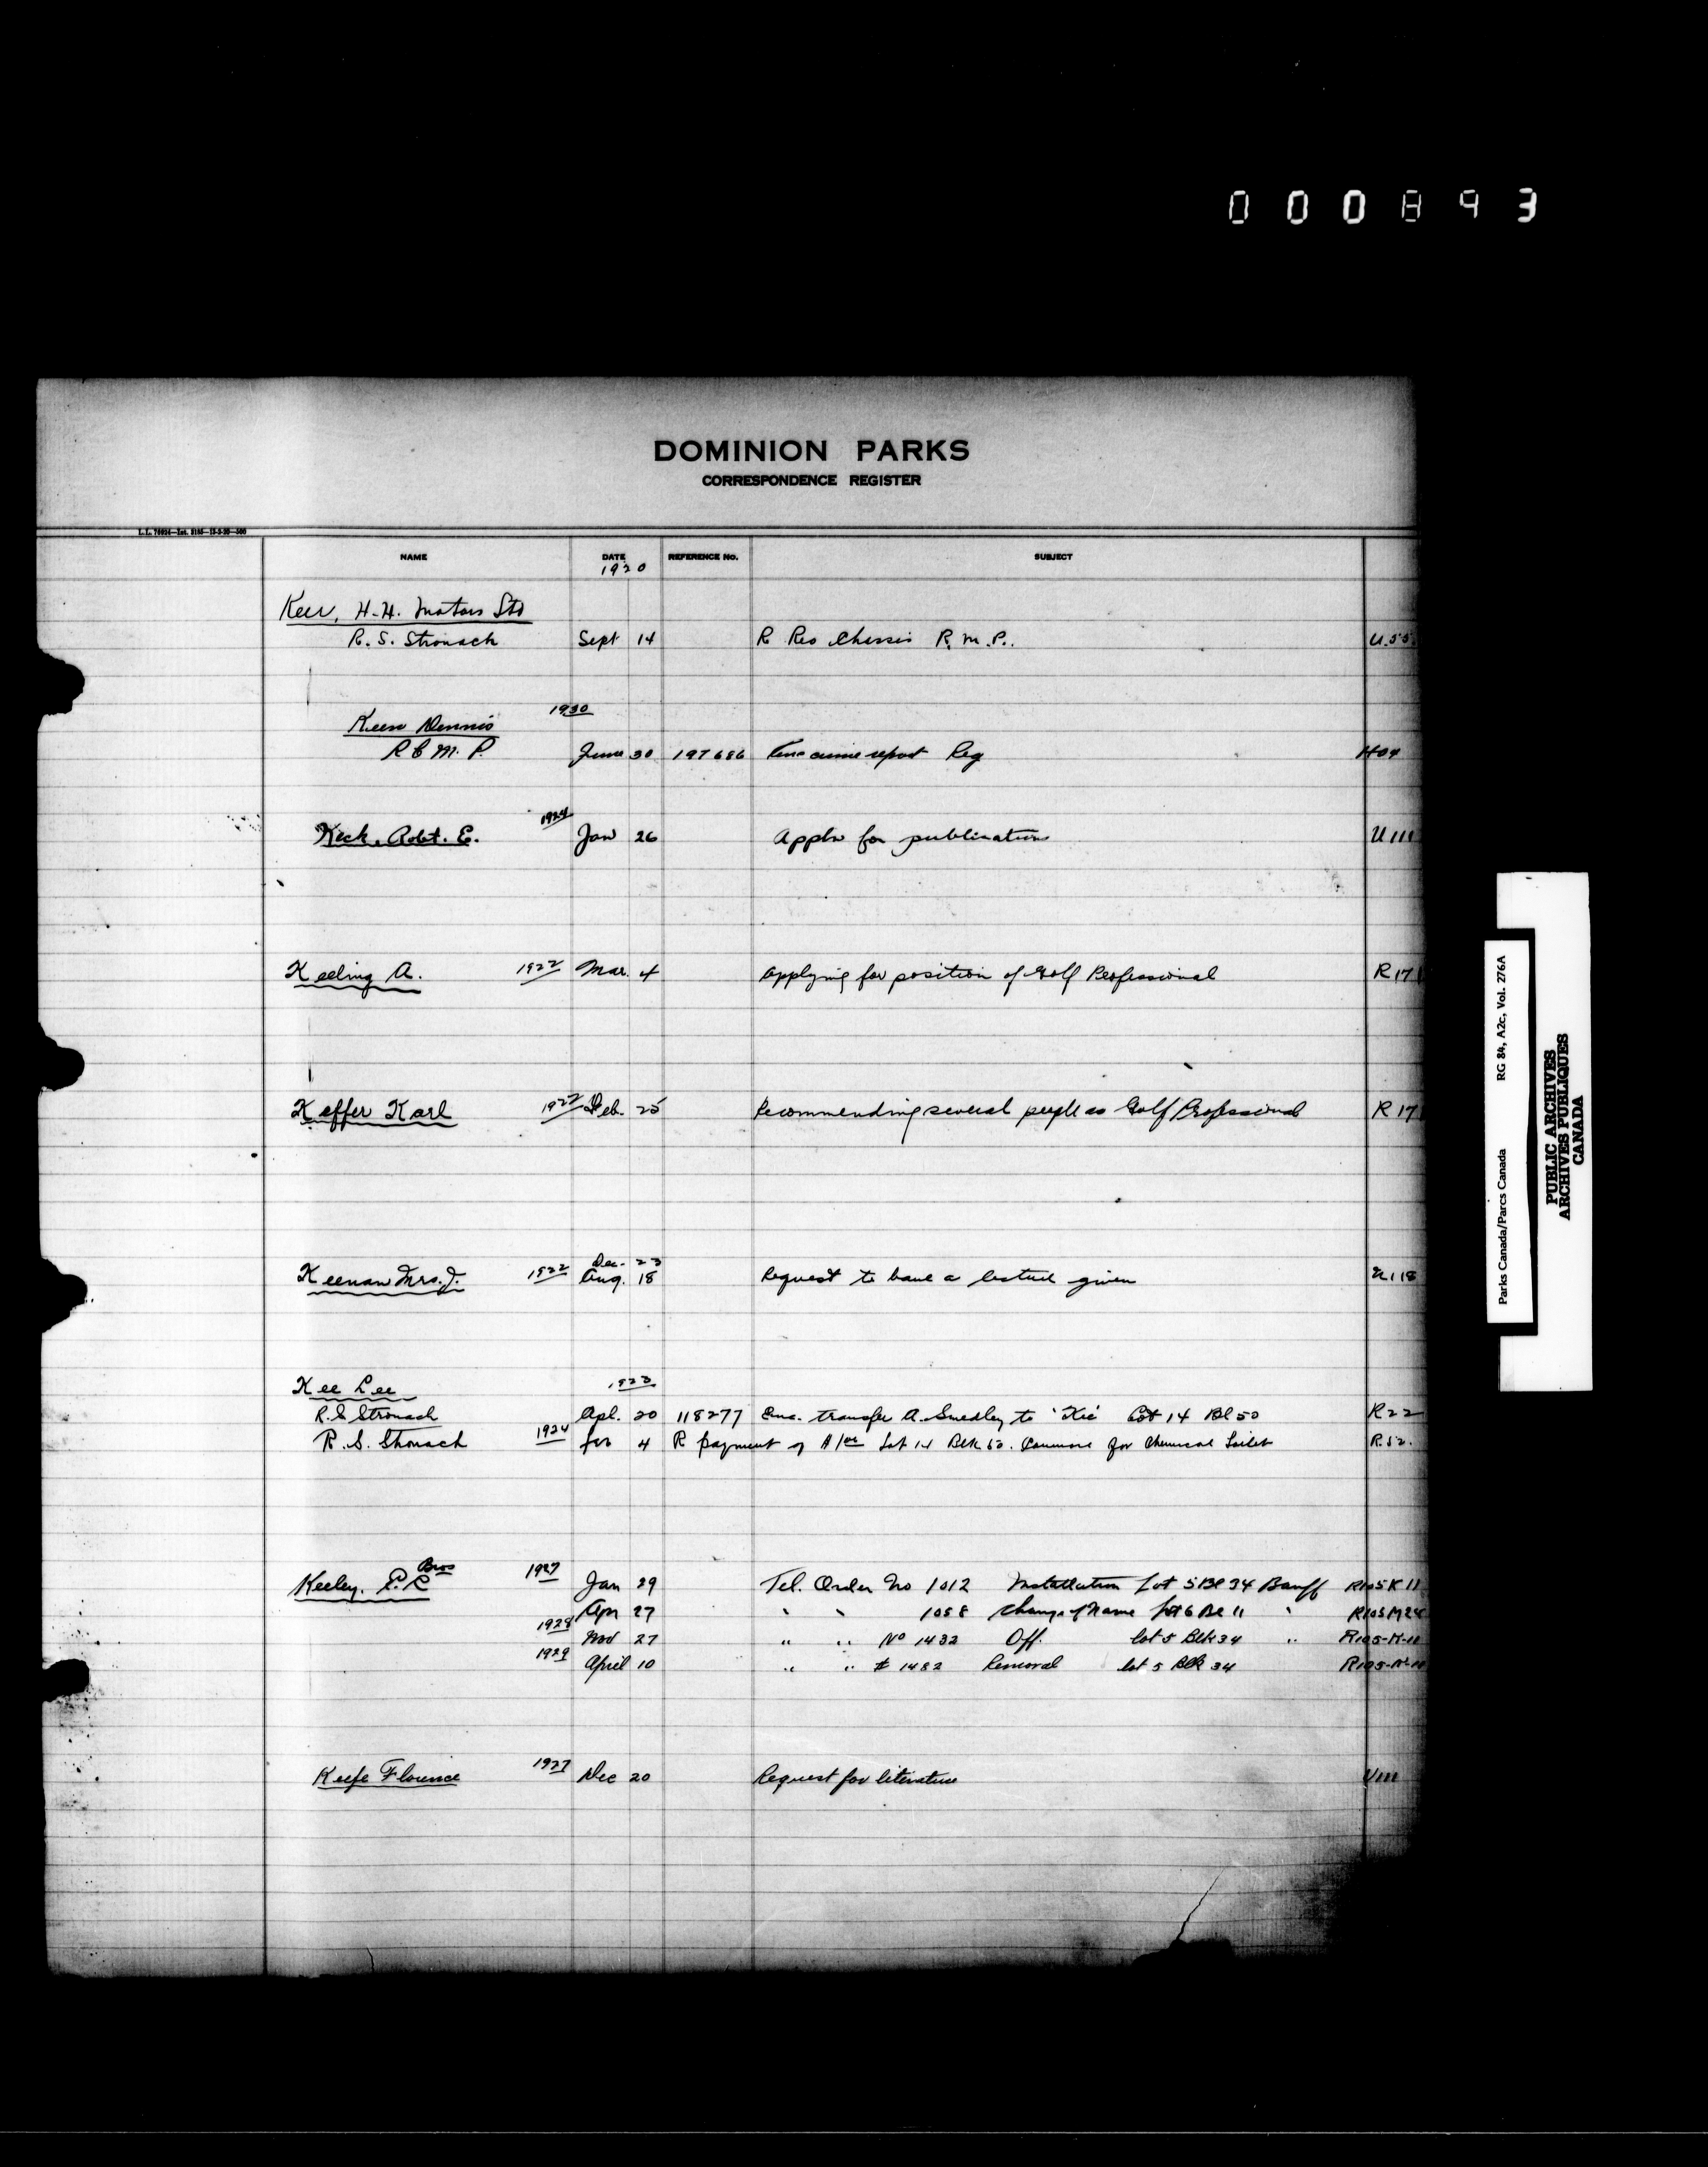 000893
DOMINION PARKS
CORRESPONDENCE REGISTER
NAME DATE REFERENCE No. SUBJECT
1920
Keer, H.H. Motors Ltd
R. S. Stronach Sept 14 R Reo Chassis R.M.P. U.55
Keen Dennis 1930
R C M. P. June 30 197686 crime report Reg
Keck, Robt. E. 1924 Jan 26 Appln for publications U111
Keeling A. 1922 Mar. 4 Applying for position of Golf Professional R171
Keffer Karl 1922 Feb. 25 Recommending several people as Golf Professional R17
Dec. 23
Keenan Mrs. J. 1922 Aug. 18 Request to have a lecture given U118
Kee Lee 1923
R.S Stronach Apl. 20 118277 Enc. transfer A. Smedley to 'Kee' Lot 14 Bl 50 R22
R. S. Stronach 1924 4 R payment of Lot 14 Blk Canmore for Chemical Toilet R.52.
Bros
Keeley, 1927 Jan 29 Tel. Order No 1012 Installation Lot 5 Bl 34 Banff R105K11
Apr 27 " " 1058 Change of Name Lot 6 Bl 11 " R105M24
1928 Nov 27 " " No 1432 Off. lot 5 Blk 34 " R105-K-11
1929 April 10 " " # 1482 Removal lot 5 Blk 34
Keefe Florence 1927 Dec 20 Request for literature U111
Parks Canada/Parcs Canada RG 84, A2c, Vol. 276A
PUBLIC ARCHIVES
ARCHIVES PUBLIQUES
CANADA